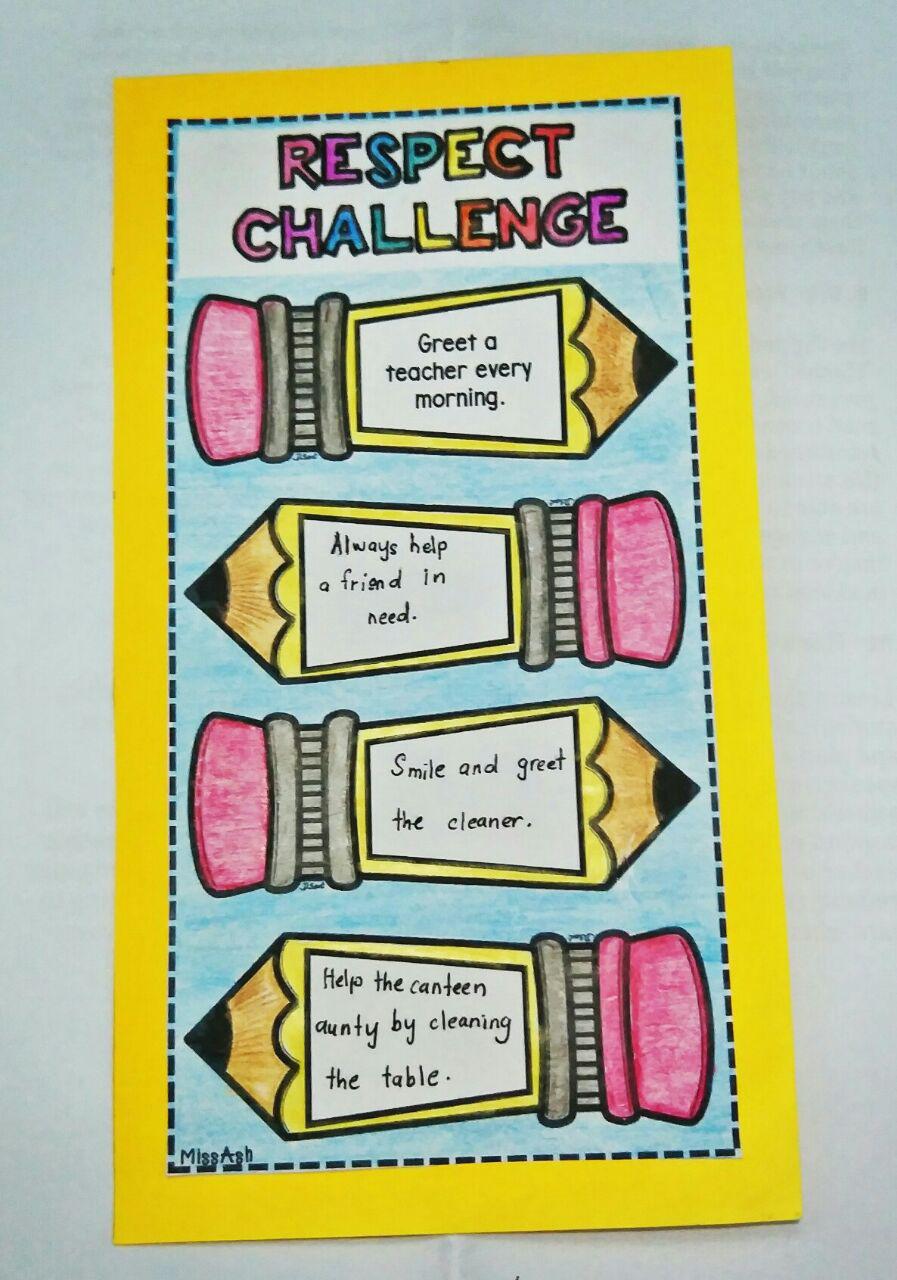 RESPECT
CHALLENGE
Greet a
teacher every
morning.
Always help
a friend in
need.
Smile and greet
the cleaner.
Help the canteen
aunty by cleaning
the table.
MissAsh